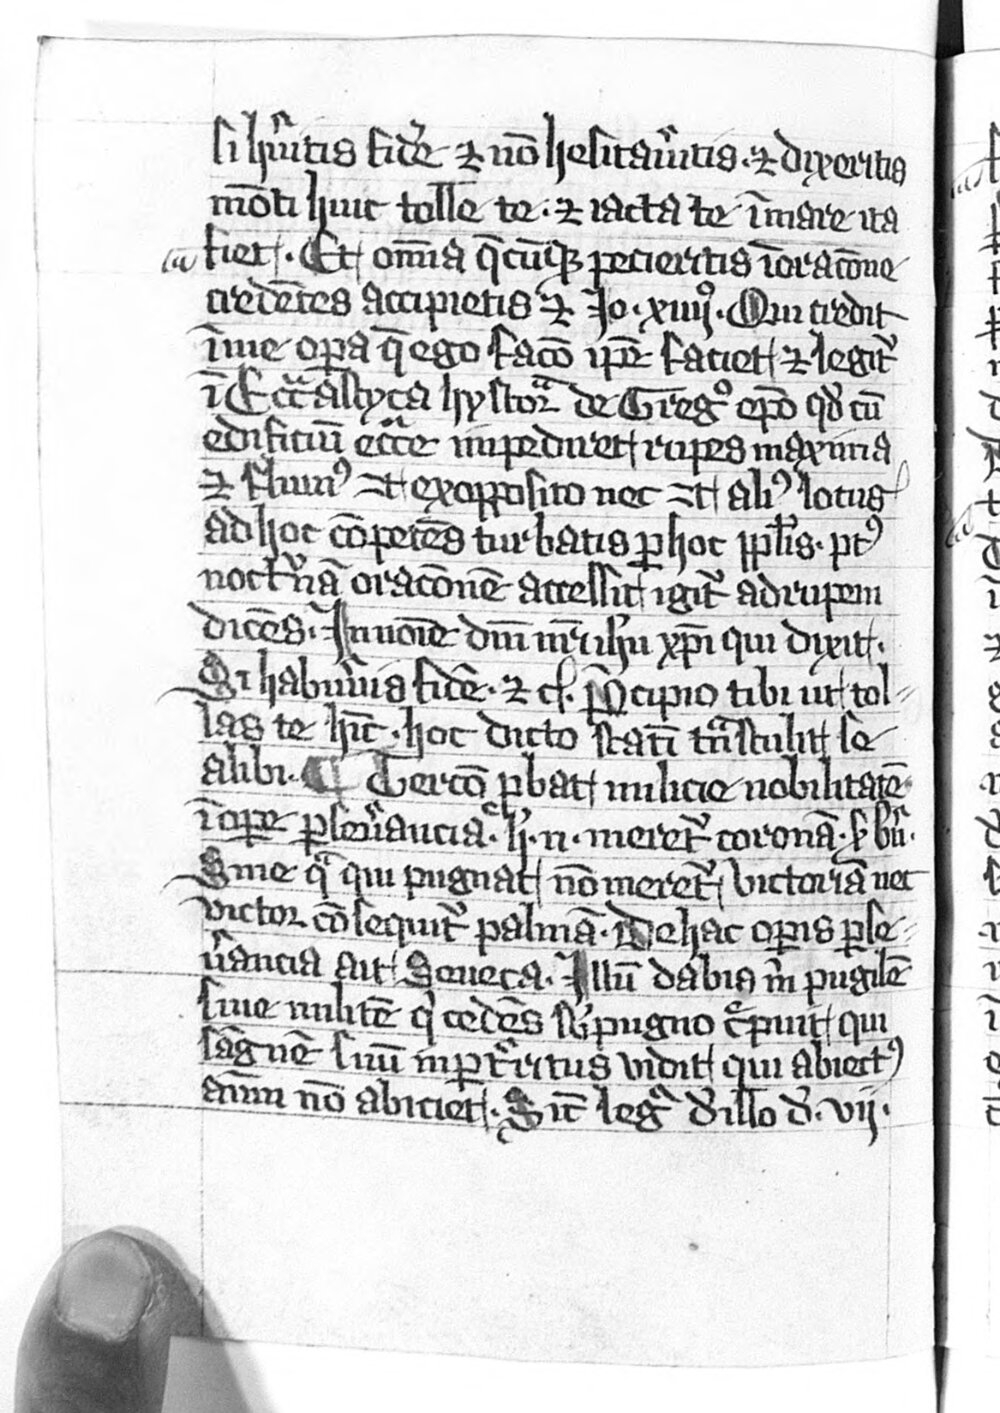 si hu͛itis fidē ⁊ nō hesitau͛itis. ⁊ dixeritis
mōti huic tolle te. ⁊ iacta te ī mare ita
fiet. Et om̄ia q̄cūqꝫ pecieritis ī orac̄one
credētes accipietis ⁊ Jo. xiiij. Qui credit
ī me oꝑa q̄ ego facō ip̄e faciet ⁊ legit᷑
ī Ecc̄astyca hystor̄a de Greg᷒ ep̄o qd̄ cū
edificiū ecc̄e impediret rupes maxima
⁊ fluui᷒ ex opposito nec ali᷒ locus
ad hoc cōpetēs turbatis ꝑ hoc pp̄lis. pt᷒
noct᷑nā orac̄onē accessit igit᷑ ad rupem
dicēs. In noīe dn̄i nr̄i ih̄u xp̄i qui dixit.
Si habu͛itis fidē. ⁊ cͣ. P̄cipio tibi ut tol-
las te hīc. hoc dicto statī trāstulit se
alibi. ¶ Tercō ꝓbat milicie nobilitatē
ī oꝑe ꝑseu͛ancia. h᷒. n. meret᷑ coronā.
Sine qͣ qui pugnat nō meret᷑ victoriā nec
victor cōsequit᷑ palmā. De hac oꝑis ꝑse-
u͛ancia ait Seneca. Illū dabis m̄ pugilē
siue militē q̄ cedēs pugno qui
sāguinē suū īꝑt͛ritus vidit qui abiect᷒
aīm nō abiciet. Sic̄ leg᷑ d̓ illo d̓. vij.